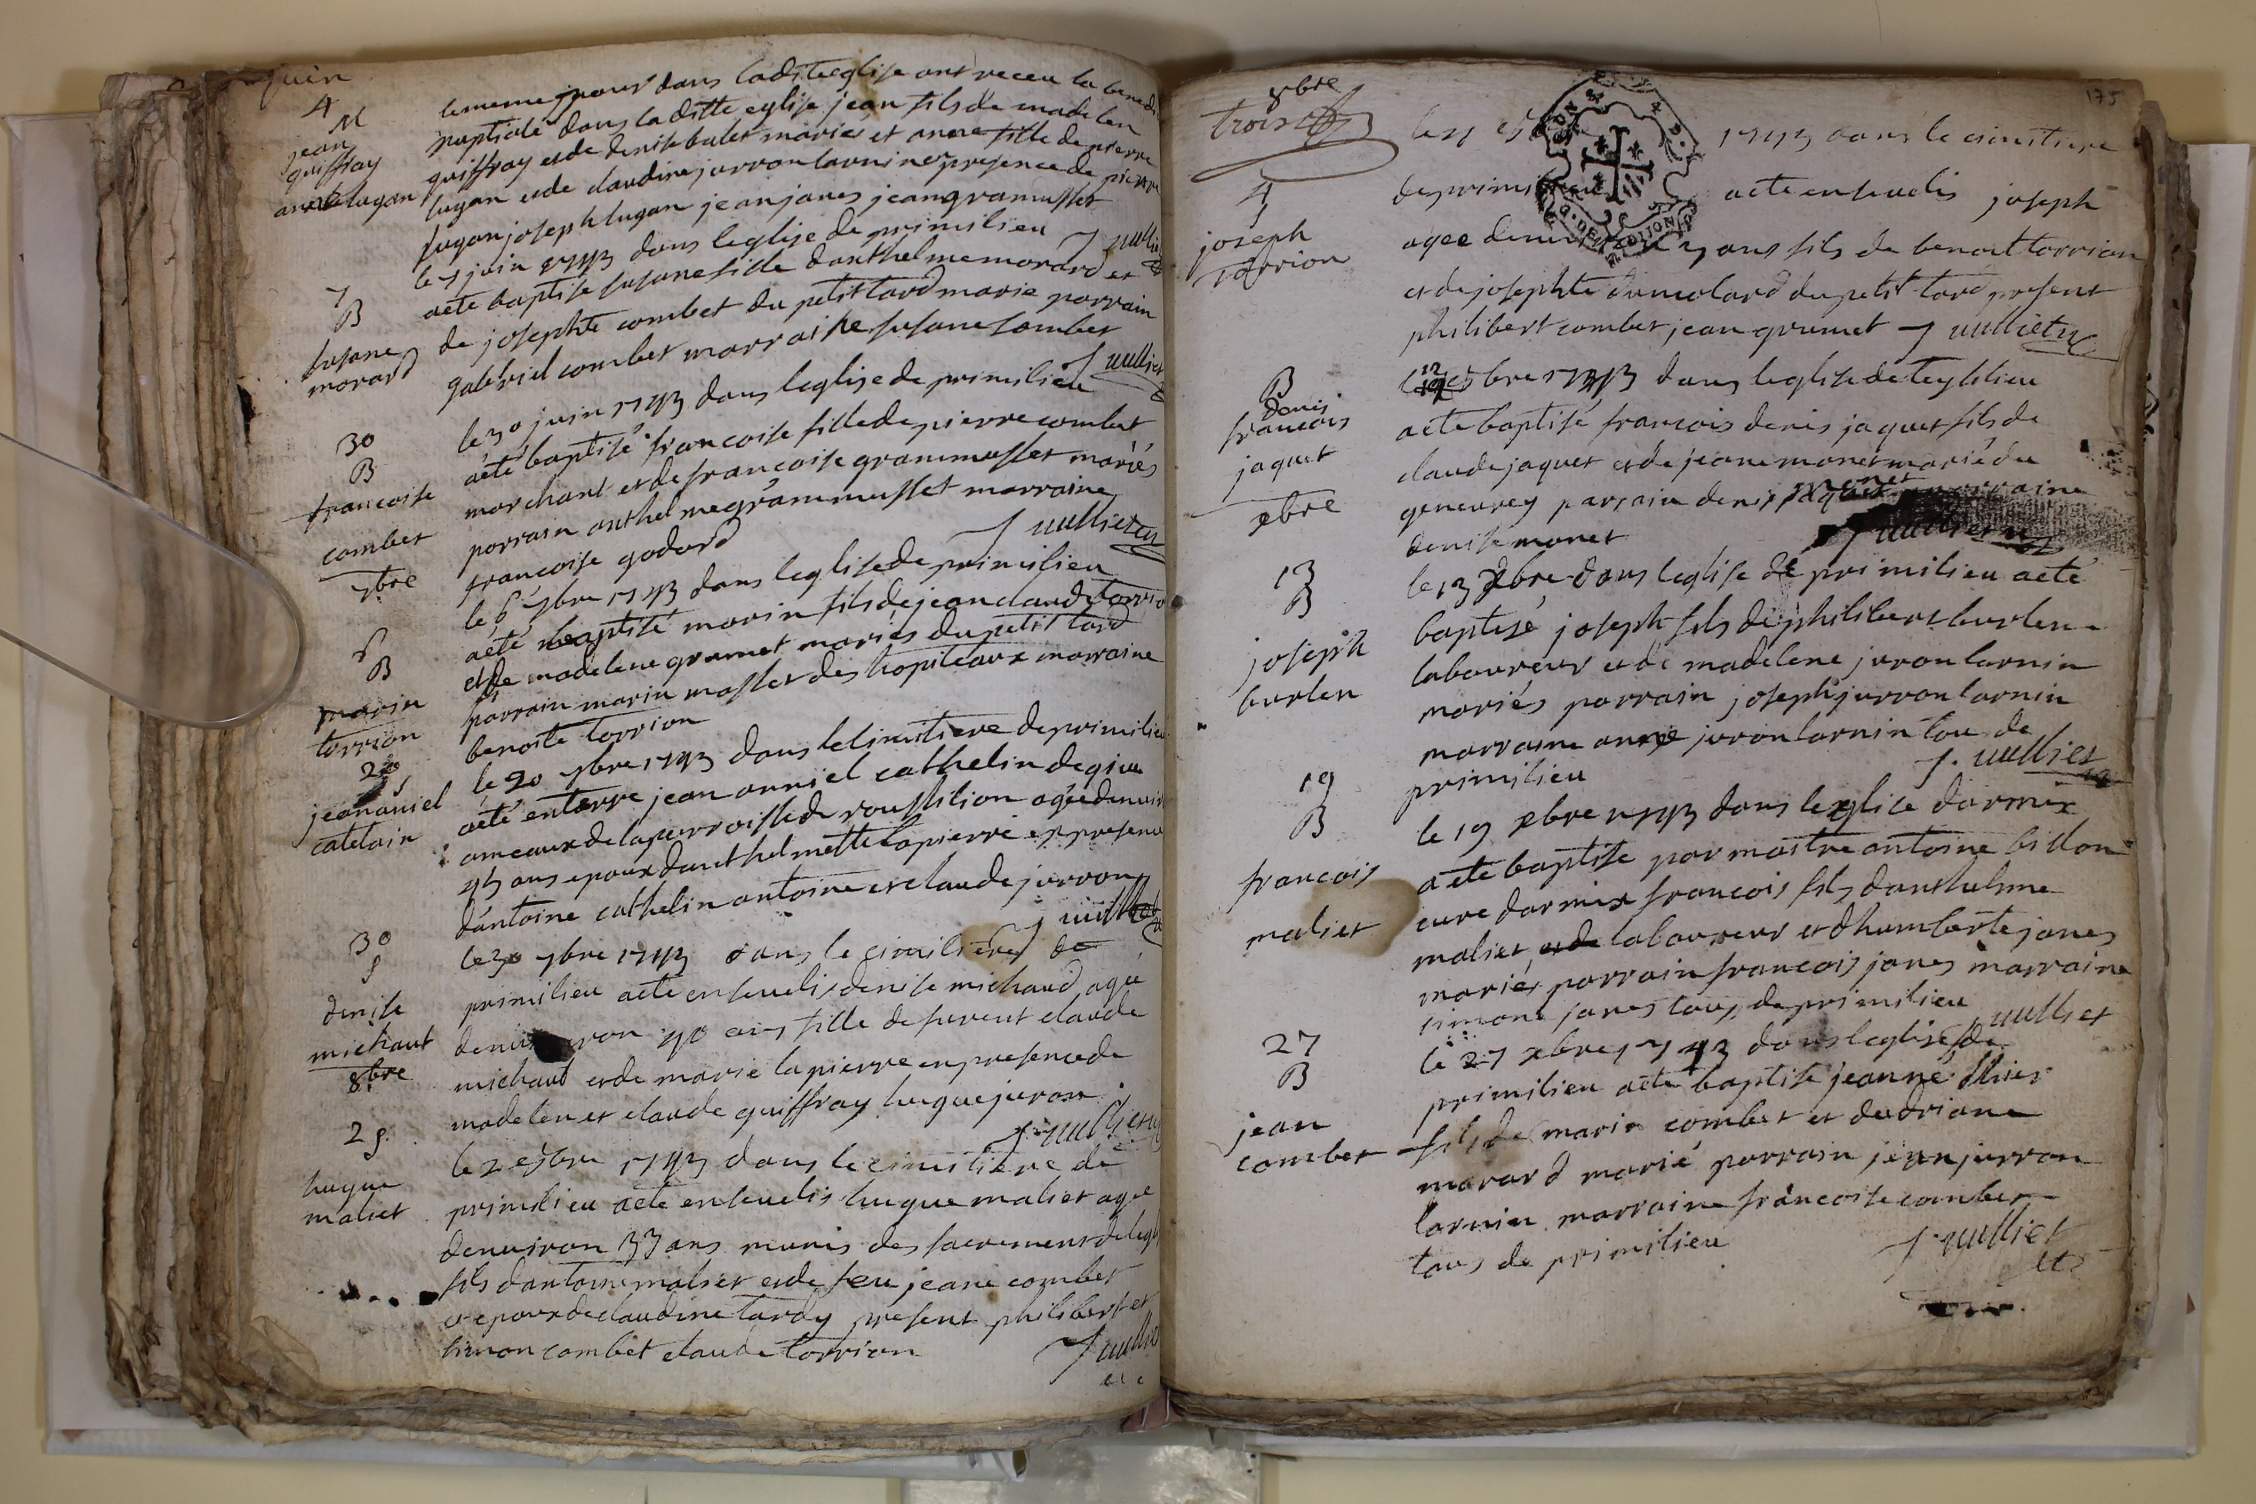 juin
4
M
jean
guiffray
anne lugan
le meme jour dans laditte eglise ont receu la bened
nuptiale dans laditte eglise jean fils de madelen
guiffray et de denise balet mariés et anne fille de pierre
lugan et de claudine jurron larnin en presence de pierre
lugan joseph lugan jean janes jean grammusset
J uullie
7
B
susane
morard
le 7 juin 1743 dans leglise de primilieu
aété baptisé susane fille danthelme morard et
de josephte combet du petit tard marie parrain
gabriel combet marraine susane combet
J uulliet
30
B
francoise
combet
le 30 juin 1743 dans leglise de primilieu
aété baptisé francoise fille de pierre combet
marchant et de francoise grammusset mariés
parrain anthelme grammusset marraine
francoise godard
J uulliet
7bre
6
B
marin
torrion
le 6 7bre 1743 dans leglise de primilieu
aété baptisé marin fils de jean claude torrio
et de madelene grumet mariés du petit tard
parrain marin masset des hopiteaux marraine
benoite torrion
20
jean aniel
catelain
le 20 7bre 1743 dans le cimitiere de primilieu
aété enterre jean anniel cathelin de
ameaux de la parroisse de roussilion agée denvir
45 ans epoux danthelmette lapierre en presence
dantoine cathelin antoine et claude jurron
J uulliet
30
S
denise
michaut
le 30 7bre 1743 dans le cimiliere de
primilieu aété enseuelis denise michaud agé
denuiron 40 ans fille de feu claude
michaud et de marie lapierre en presence de
madelen et claude guiffray hugue juron
J uulliet
8bre
2 S.
hugue
maliet
le 2 8bre 1743 dans le cimitiere de
primilieu aété enseuelis hugue maliet agé
denuiron 33 ans munis des sacremens de legl
fils dantoine maliet et de feu jeane combet
et epoux de claudine tardy present philibert et
simon combet claude torrion
J uullie
175
8bre
trois
4
S
joseph
torrion
le 4 1743 dans le cimitiere
de primilieu aété enseuelis joseph
agée denuiron ans fils de benoit torrion
et de josephte dumolard du petit tard present
philibert combet jean grumet J uulliet
B
denis
francois
jaquet
le 12 8bre 1743 dans leglise de teysilieu
aété baptisé francois denis jaquet fils de
claude jaquet et de jeane monet marié du
geneurey parrain denis monet marraine
denise monet
J uulliet
xbre
13
B
joseph
burlen
le 13 xbre dans leglise de primilieu aété
baptisé joseph fils de philibert burlen
laboureur et de madelene juron larnin
mariés parrain joseph jurron larnin
marraine anne juron larnin tou de
primilieu
J. uulliet
19
B
francois
maliet
le 19 xbre 1743 dans leglise darmix
aété baptisé par maitre antoine billon
cure darmix francois fils danthelme
maliet laboureur et dhumberte janes
mariés parrain francois janes marraine
simone janes tous de primilieu
J uulliet
27
B
jean
combet
le 27 xbre 1743 dans leglise de
primilieu aété baptisé jeanne
fils de marin combet et dadriane
morard marié parrain jean jurron
larnin marraine francoise combet
tous de primilieu
J. uulliet